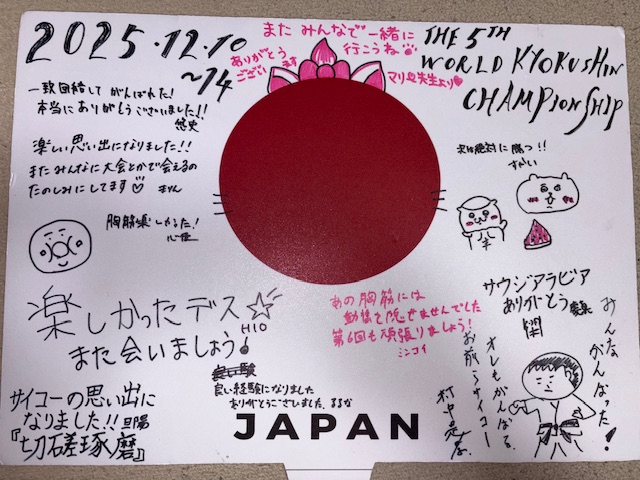 2025.12.10
~14
また みんなで一緒に
行こうね
ありがとう
ござい ます
マリ 先生より
THE 5TH
WORLD KYOKUSHIN
CHAMPIONSHIP
一致団結して がんばれた!
本当にありがとうございました!!
悠史
楽しい思い出になりました!!
またみんなに大会とかで会えるの
たのしみにしてます♡
胸筋
心
次は絶対に勝つ!!
楽しかったデス☆
HIO
また会いましょう!
あの胸筋には
動揺を隠せませんでした
第6回も頑張りましょう!
シンコイ
サウジアラビア
ありがとう
押忍
みんな がんばった!
オレもがんばる
お前らサイコー
サイコーの思い出に
なりました!!旦陽
『切磋琢磨』
良い経験になりました
ありがとうございました、まるな
JAPAN